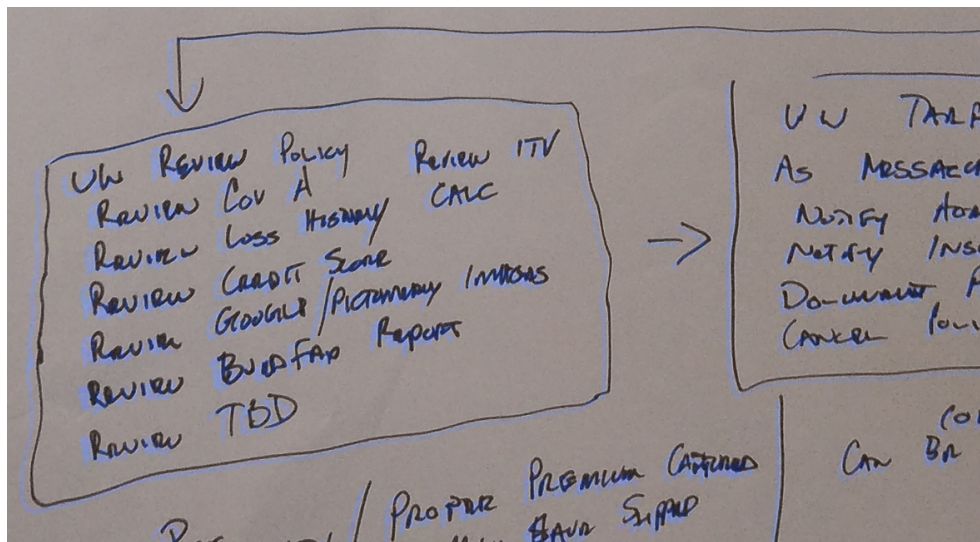 UW REVIEW POLICY REVIEW ITV
REVIEW COV A CALC
REVIEW LOSS HISTORY
REVIEW CREDIT SCORE
REVIEW GOOGLE/PICTOMETRY IMAGES
REVIEW BUILDFAX REPORT
REVIEW TBD
UW
AS
NOTIFY
NOTIFY INS
DOCUMENT
CANCEL POLI
/ PROPER PREMIUM CAPTURED
HAVE SLIPPED
CAN BE